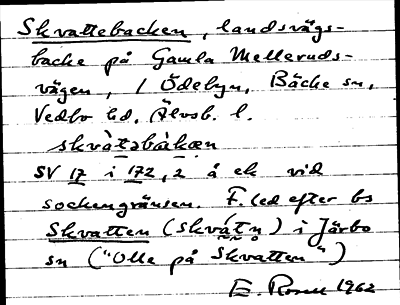 Skvattebacken, landsvägs-
backe på Gamla Melleruds-
vägen, / Ödebyn, Bäcke sn,
Vedbo hd, Älvsb. l.
skvàtəbàkæn
SV 17 i 172, 2 å ek vid
sockengränsen. F. led efter bs
Skvatten (skvátn̥) i Järbo
sn ("Olle på Skvatten")
E. Rosell 1962